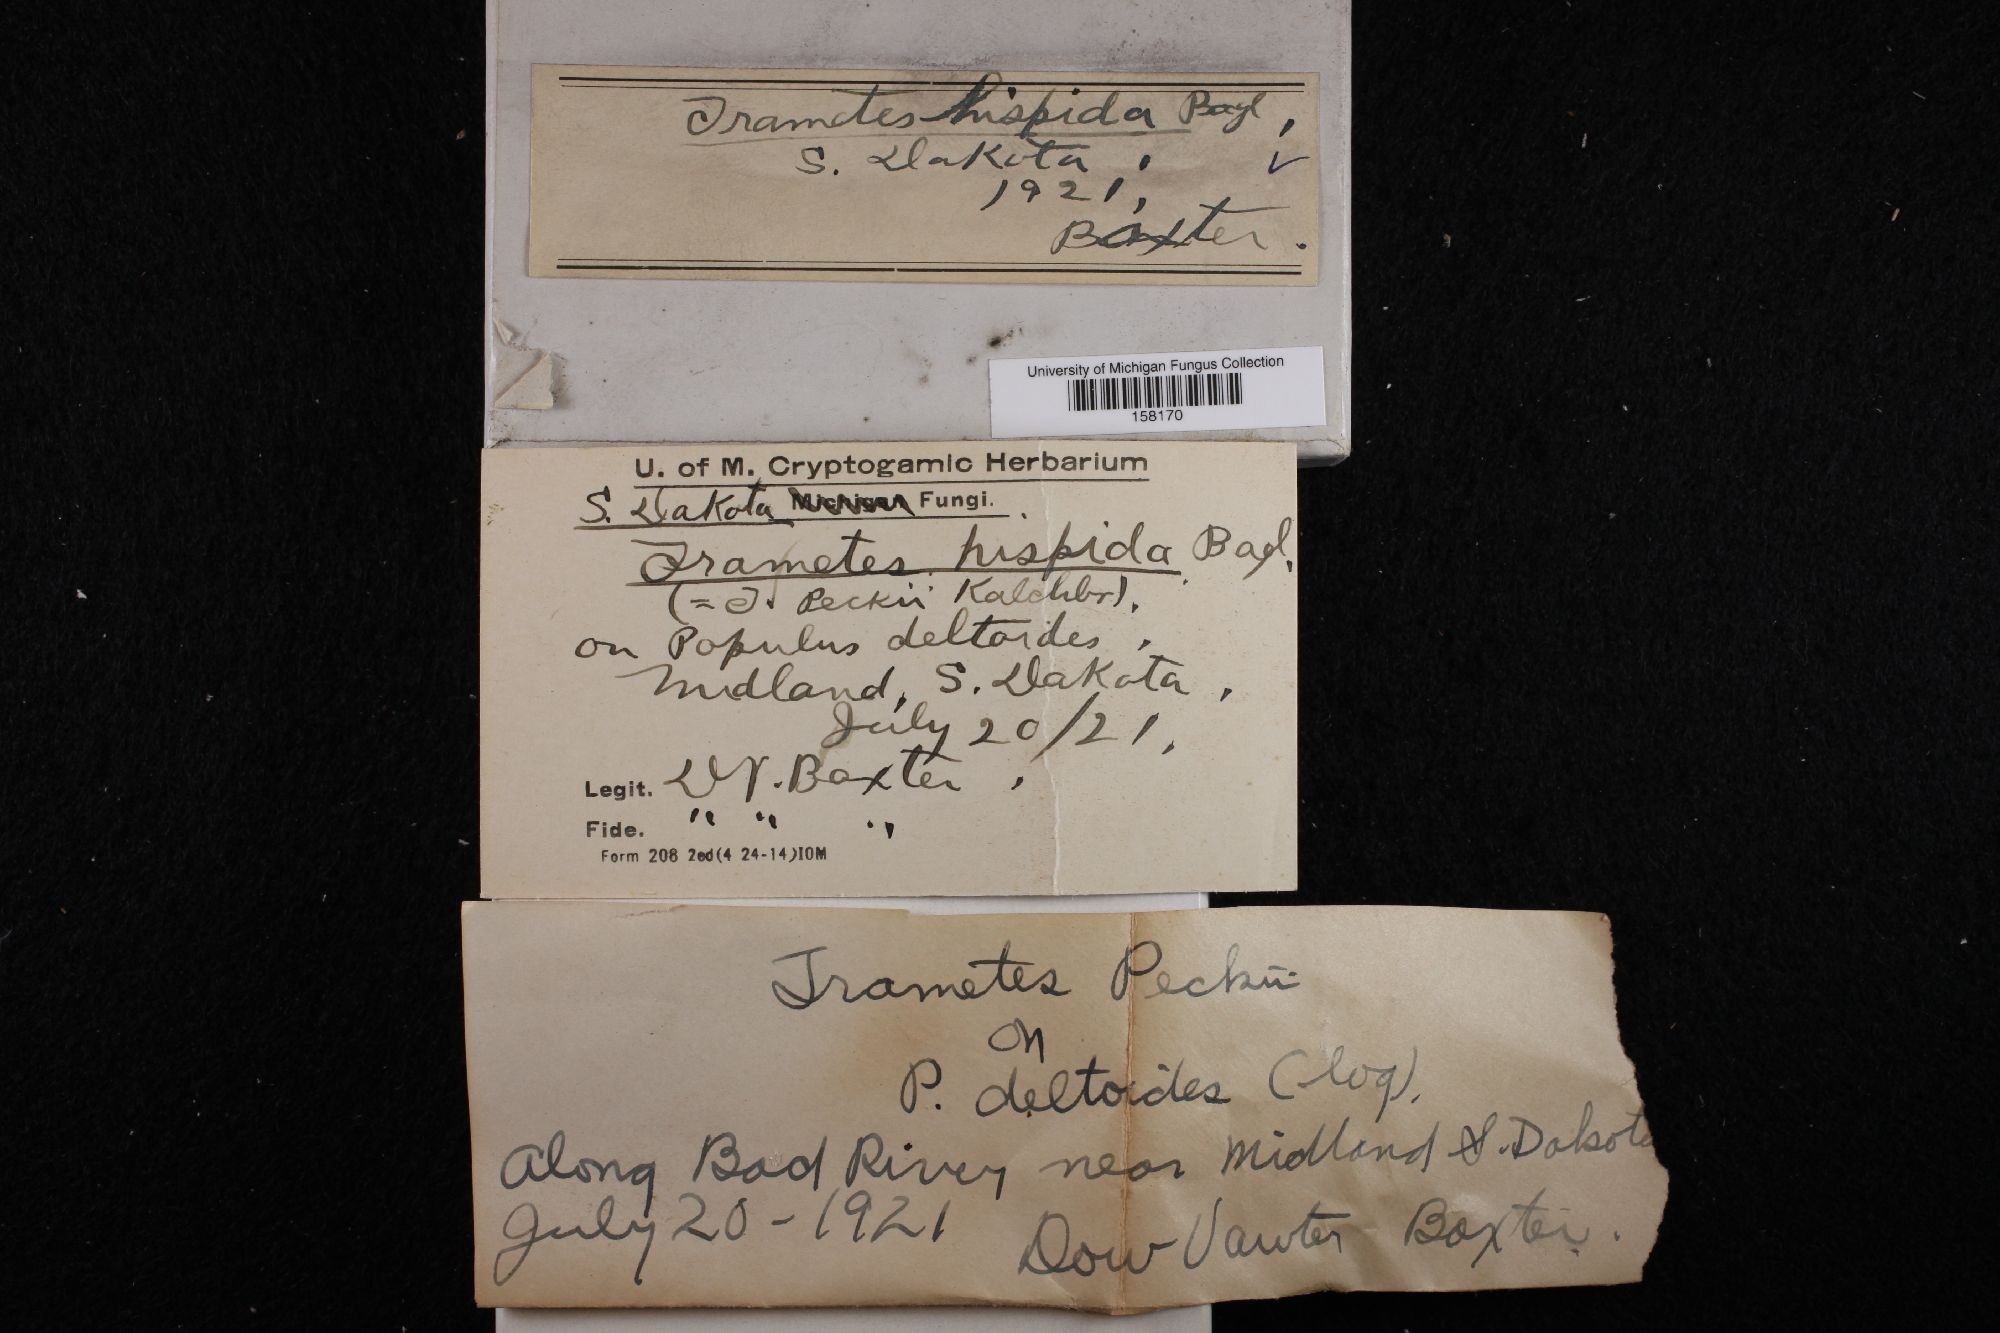 Trametes hispida Bagl,
S. Dakota,
1921,
Baxter.
University of Michigan Fungus Collection
158170
U. of M. Cryptogamic Herbarium
S. Dakota Michigan Fungi.
Trametes hispida Bagl,
(= T. Peckii Kalchbr),
on Populus deltoides,
Midland, S. Dakota,
July 20/21,
Legit. D V. Baxter,
Fide. " " "
Form 208 2ed(4 24-14)10M
Trametes Peckii
on
P. deltoides (log).
Along Bad River near Midland S. Dakota
July 20-1921 Dow Vawter Baxter.